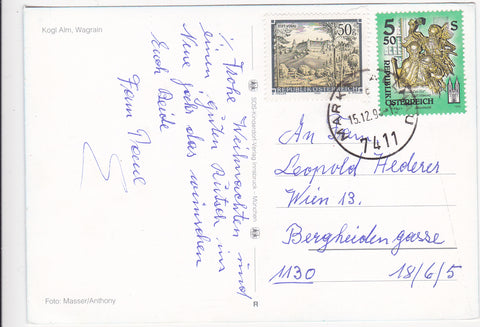 Kogl Alm, Wagrain
Frohe Weihnachten und
einen guten Rutsch ins
Neue Jahr das wünschen
Euch Beide
Fam
Foto: Masser/Anthony
R
50g
REPUBLIK ÖSTERREICH
5 50 S
REPUBLIK
ÖSTERREICH
MARKT
15.12.9
7411
An Fam
Leopold Hederer
Wien 13.
Bergheidengasse
1130 18/6/5